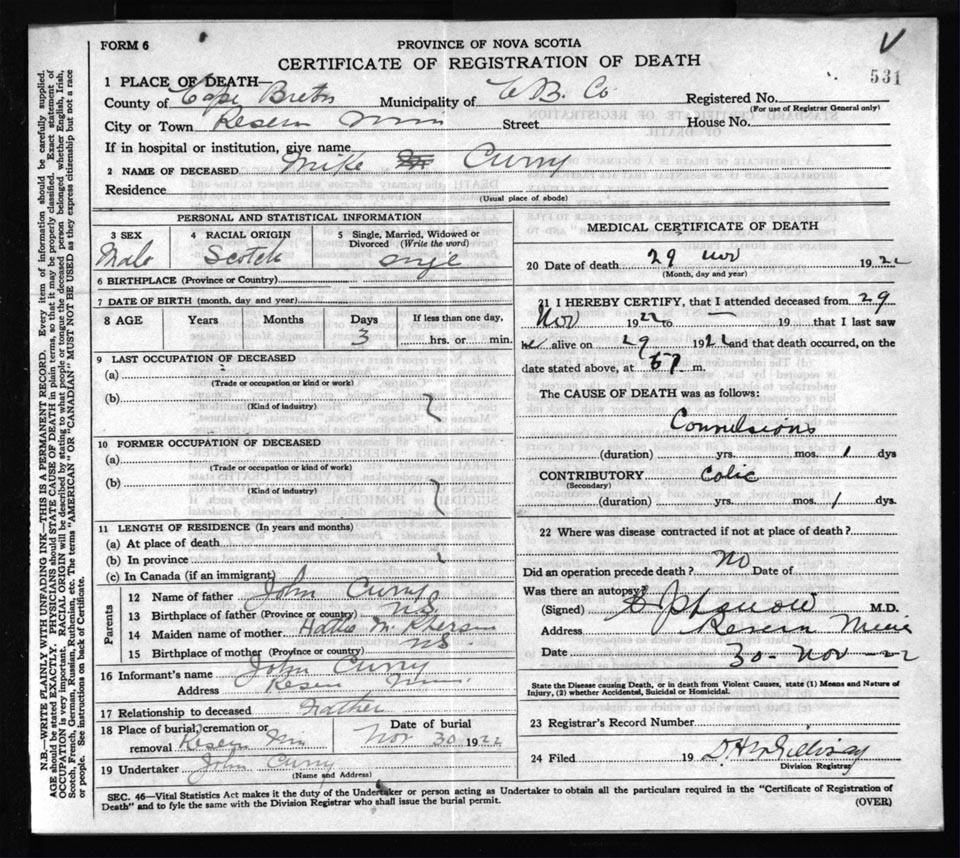 FORM 6
PROVINCE OF NOVA SCOTIA
CERTIFICATE OF REGISTRATION OF DEATH
531
1 PLACE OF DEATH—
County of Cape Breton Municipality of C B. Co Registered No.
(For use of Registrar General only)
City or Town Reserve Mines Street House No.
If in hospital or institution, give name
2 NAME OF DECEASED Mike Curry
Residence
(Usual place of abode)
PERSONAL AND STATISTICAL INFORMATION
3 SEX 4 RACIAL ORIGIN 5 Single, Married, Widowed or Divorced (Write the word)
Male Scotch Single
6 BIRTHPLACE (Province or Country)
7 DATE OF BIRTH (month, day and year)
8 AGE Years Months Days If less than one day,
3 hrs. or min.
9 LAST OCCUPATION OF DECEASED
(a)
(Trade or occupation or kind or work)
(b)
(Kind of industry)
10 FORMER OCCUPATION OF DECEASED
(a)
(Trade or occupation or kind or work)
(b)
(Kind of industry)
11 LENGTH OF RESIDENCE (In years and months)
(a) At place of death
(b) In province
(c) In Canada (if an immigrant)
Parents
12 Name of father John Curry
13 Birthplace of father (Province or country) N.S.
14 Maiden name of mother
15 Birthplace of mother (Province or country) N.S.
16 Informant's name John Curry
Address Reserve Mines
17 Relationship to deceased Father
18 Place of burial, cremation or removal Reserve Min
Date of burial
Nov 30 1922
19 Undertaker John Curry
(Name and Address)
MEDICAL CERTIFICATE OF DEATH
20 Date of death 29 Nov 1922
(Month, day and year)
21 I HEREBY CERTIFY, that I attended deceased from 29
Nov 1922 to — 19 that I last saw
he alive on 29 1922 and that death occurred, on the
date stated above, at m.
The CAUSE OF DEATH was as follows:
Convulsions
(duration) yrs. mos. 1 dys
CONTRIBUTORY Colic
(Secondary)
(duration) yrs. mos. 1 dys.
22 Where was disease contracted if not at place of death?
Did an operation precede death? No Date of
Was there an autopsy?
(Signed) M.D.
Address Reserve Mines
Date 30 - Nov - 22
State the Disease causing Death, or in death from Violent Causes, state (1) Means and Nature of
Injury, (2) whether Accidental, Suicidal or Homicidal.
23 Registrar's Record Number
24 Filed 19 D. H. McGillivray
Division Registrar
SEC. 46—Vital Statistics Act makes it the duty of the Undertaker or person acting as Undertaker to obtain all the particulars required in the "Certificate of Registration of
Death" and to fyle the same with the Division Registrar who shall issue the burial permit.
(OVER)
N.B.—WRITE PLAINLY WITH UNFADING INK—THIS IS A PERMANENT RECORD. Every item of information should be carefully supplied.
AGE should be stated EXACTLY. PHYSICIANS should STATE CAUSE OF DEATH in plain terms, so that it may be properly classified. Exact statement of
OCCUPATION is very important. RACIAL ORIGIN will be described by stating to what people or tongue the deceased person belonged whether English, Irish,
Scotch, French, German, Russian, Ruthenian, etc. The terms "AMERICAN" OR "CANADIAN" MUST NOT BE USED as they express citizenship but not a race
or people. See instructions on back of Certificate.